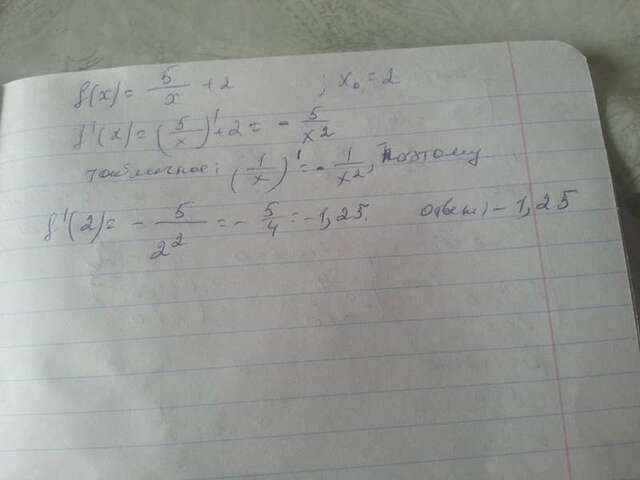 f(x) = 5/x + 2 ; x₀ = 2
f'(x) = (5/x)' + 2 = - 5/x²
табличное: (1/x)' = - 1/x², поэтому
f'(2) = - 5/2² = - 5/4 = -1,25. ответ: -1,25